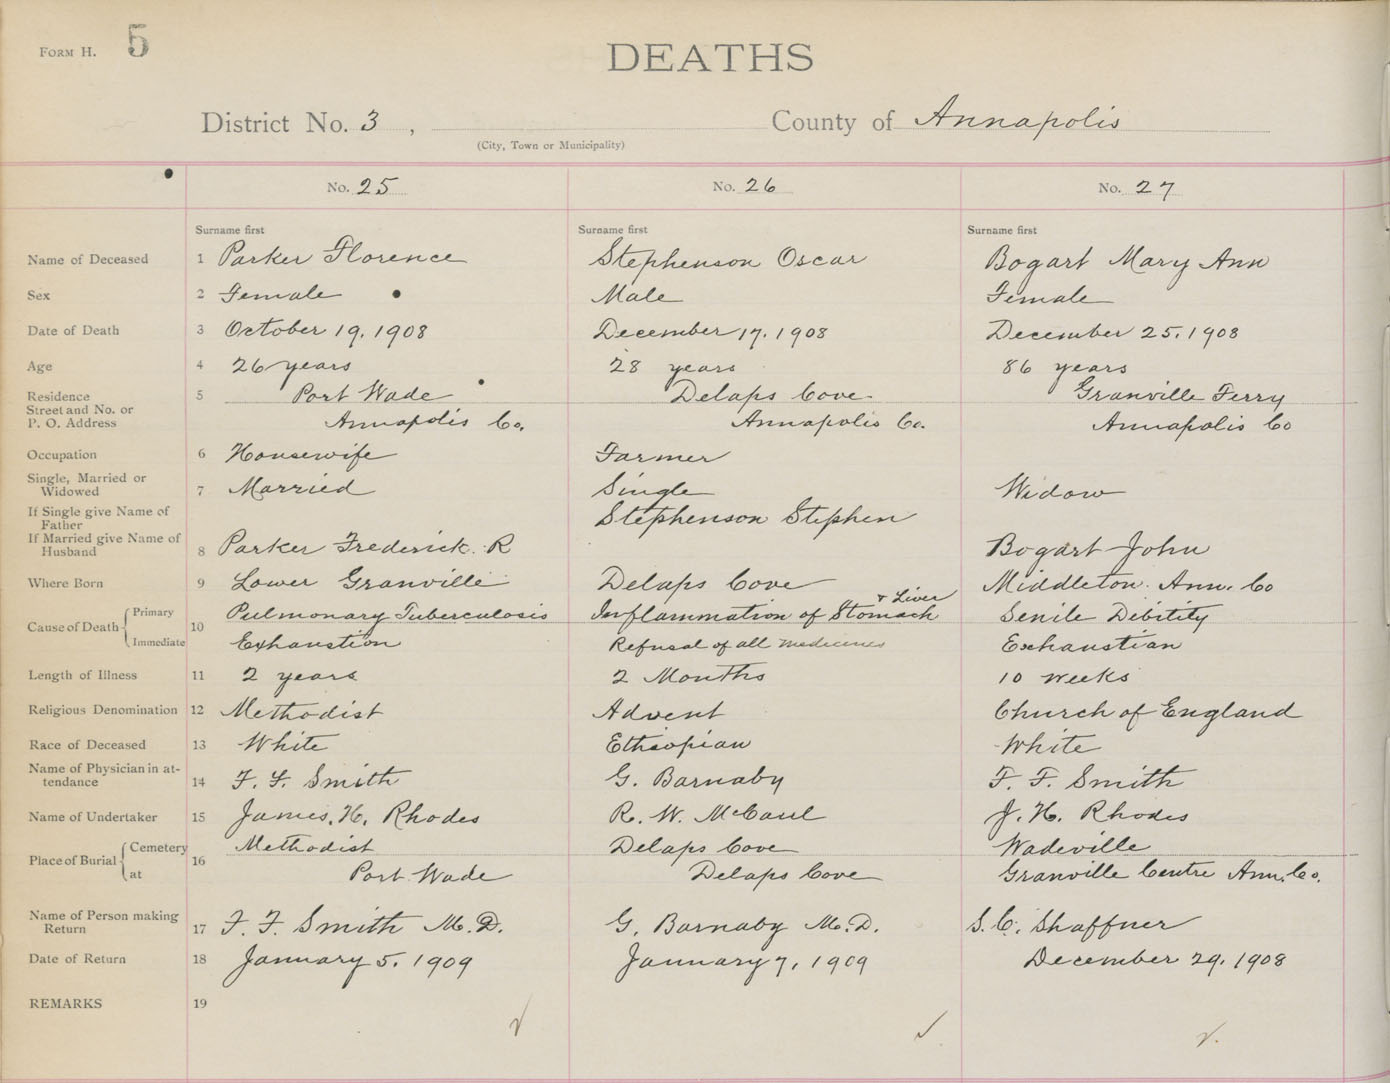 FORM H. 5
DEATHS
District No. 3, County of Annapolis
(City, Town or Municipality)
No. 25 No. 26 No. 27
Surname first Surname first Surname first
Name of Deceased 1 Parker Florence Stephenson Oscar Bogart Mary Ann
Sex 2 Female Male Female
Date of Death 3 October 19, 1908 December 17, 1908 December 25, 1908
Age 4 26 years 28 years 86 years
Residence 5 Port Wade Delaps Cove Granville Ferry
Street and No. or
P. O. Address Annapolis Co. Annapolis Co. Annapolis Co
Occupation 6 Housewife Farmer
Single, Married or
Widowed 7 Married Single Widow
If Single give Name of
Father Stephenson Stephen
If Married give Name of
Husband 8 Parker Frederick. R Bogart John
Where Born 9 Lower Granville Delaps Cove Middleton. Ann. Co
Cause of Death { Primary 10 Pulmonary Tuberculosis Inflammation of Stomach & Liver Senile Debility
Immediate Exhaustion Refusal of all medicines Exhaustian
Length of Illness 11 2 years 2 Months 10 weeks
Religious Denomination 12 Methodist Advent Church of England
Race of Deceased 13 White Ethiopian White
Name of Physician in at-
tendance 14 F. F. Smith G. Barnaby F. F. Smith
Name of Undertaker 15 James. H. Rhodes R. W. McCaul J. H. Rhodes
Place of Burial { Cemetery 16 Methodist Delaps Cove Wadeville
at Port Wade Delaps Cove Granville Centre Ann. Co.
Name of Person making
Return 17 F. F. Smith M.D. G. Barnaby M.D. S. C. Shaffner
Date of Return 18 January 5, 1909 January 7, 1909 December 29, 1908
REMARKS 19